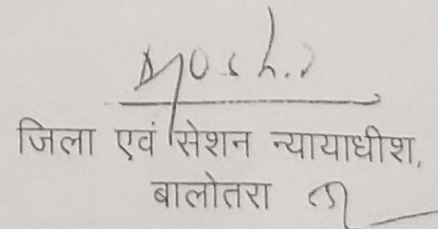 जिला एवं सेशन न्यायाधीश,
बालोतरा